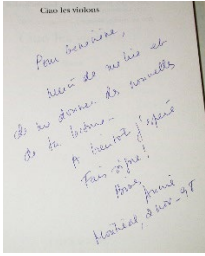 Ciao les violons
Pour Geneviève,
merci de me lire et
de me donner des nouvelles
de ta
A bientôt j'espère
Fais signe!
Montréal, 2 nov. 95